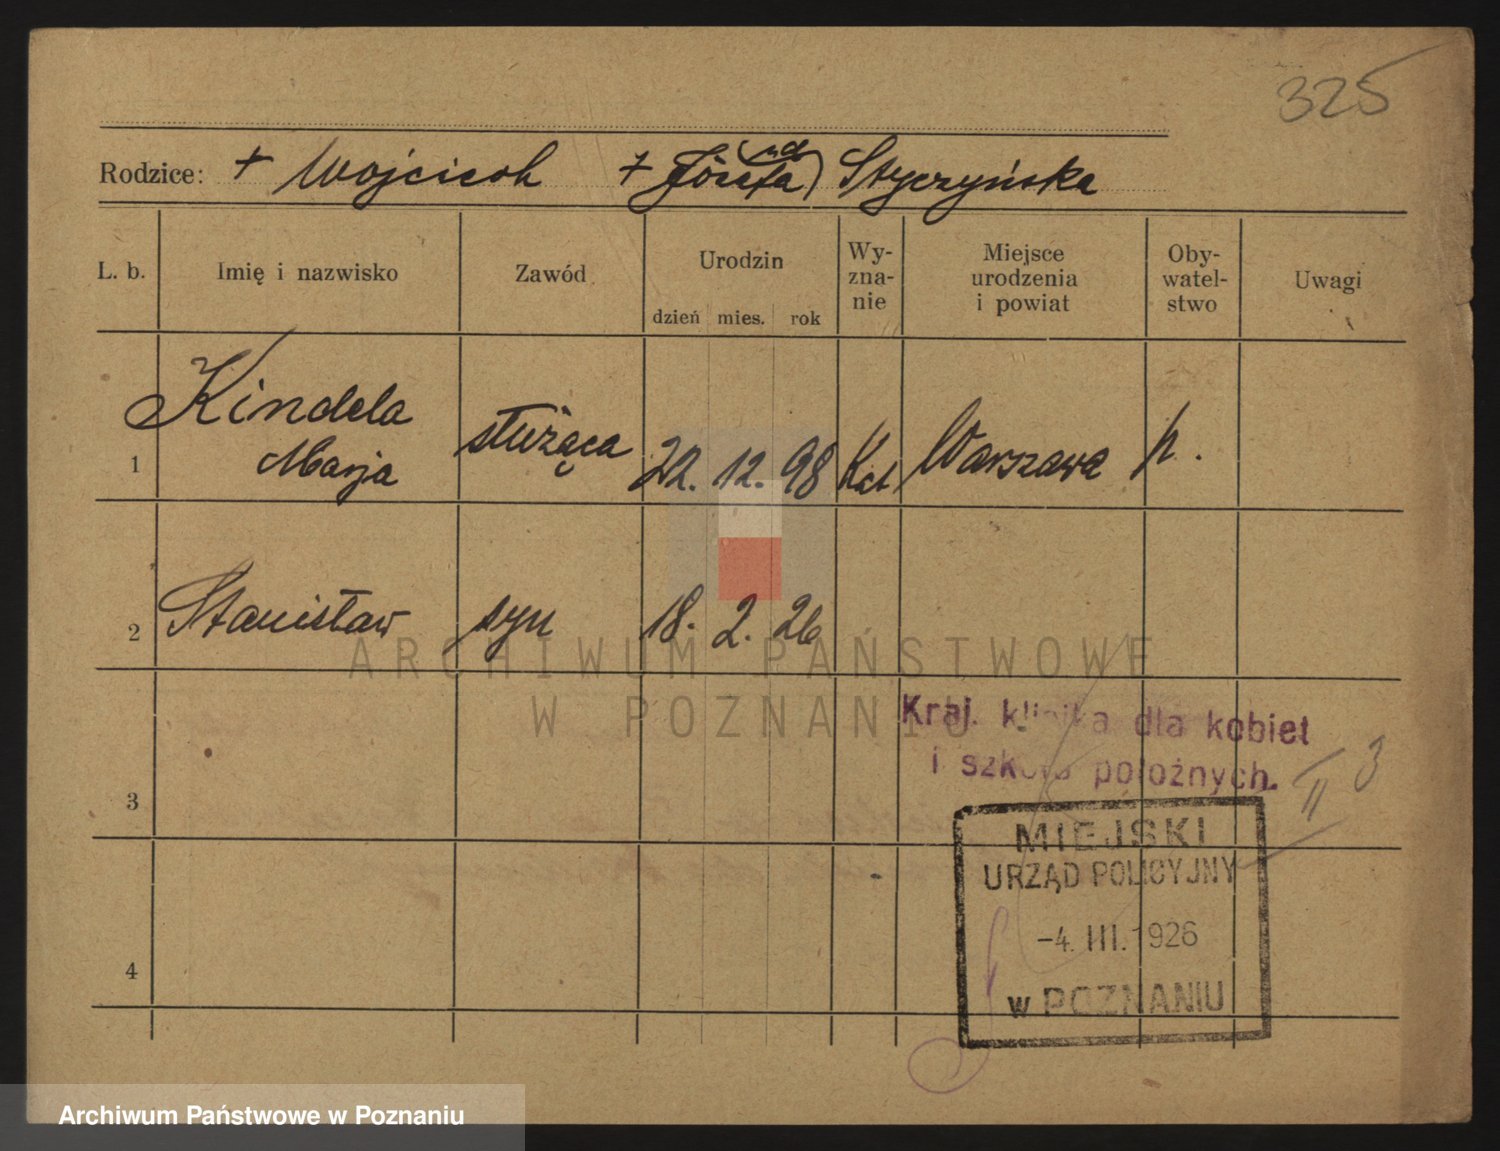 325
Rodzice: + Wojciech + Józefa Styczyńska
L. b. Imię i nazwisko Zawód Urodzin dzień mies. rok Wy-zna-nie Miejsce urodzenia i powiat Oby-watel-stwo Uwagi
Kindela
1 Marja służąca 22. 12. 98 Kat Warszawa p.
2 Stanisław syn 18. 2. 26
ARCHIWUM PAŃSTWOWE
W POZNANIU
Kraj. klinika dla kobiet
i szkoła położnych.
II 3
3
MIEJSKI
URZĄD POLICYJNY
-4. III. 1926
4
w POZNANIU
Archiwum Państwowe w Poznaniu